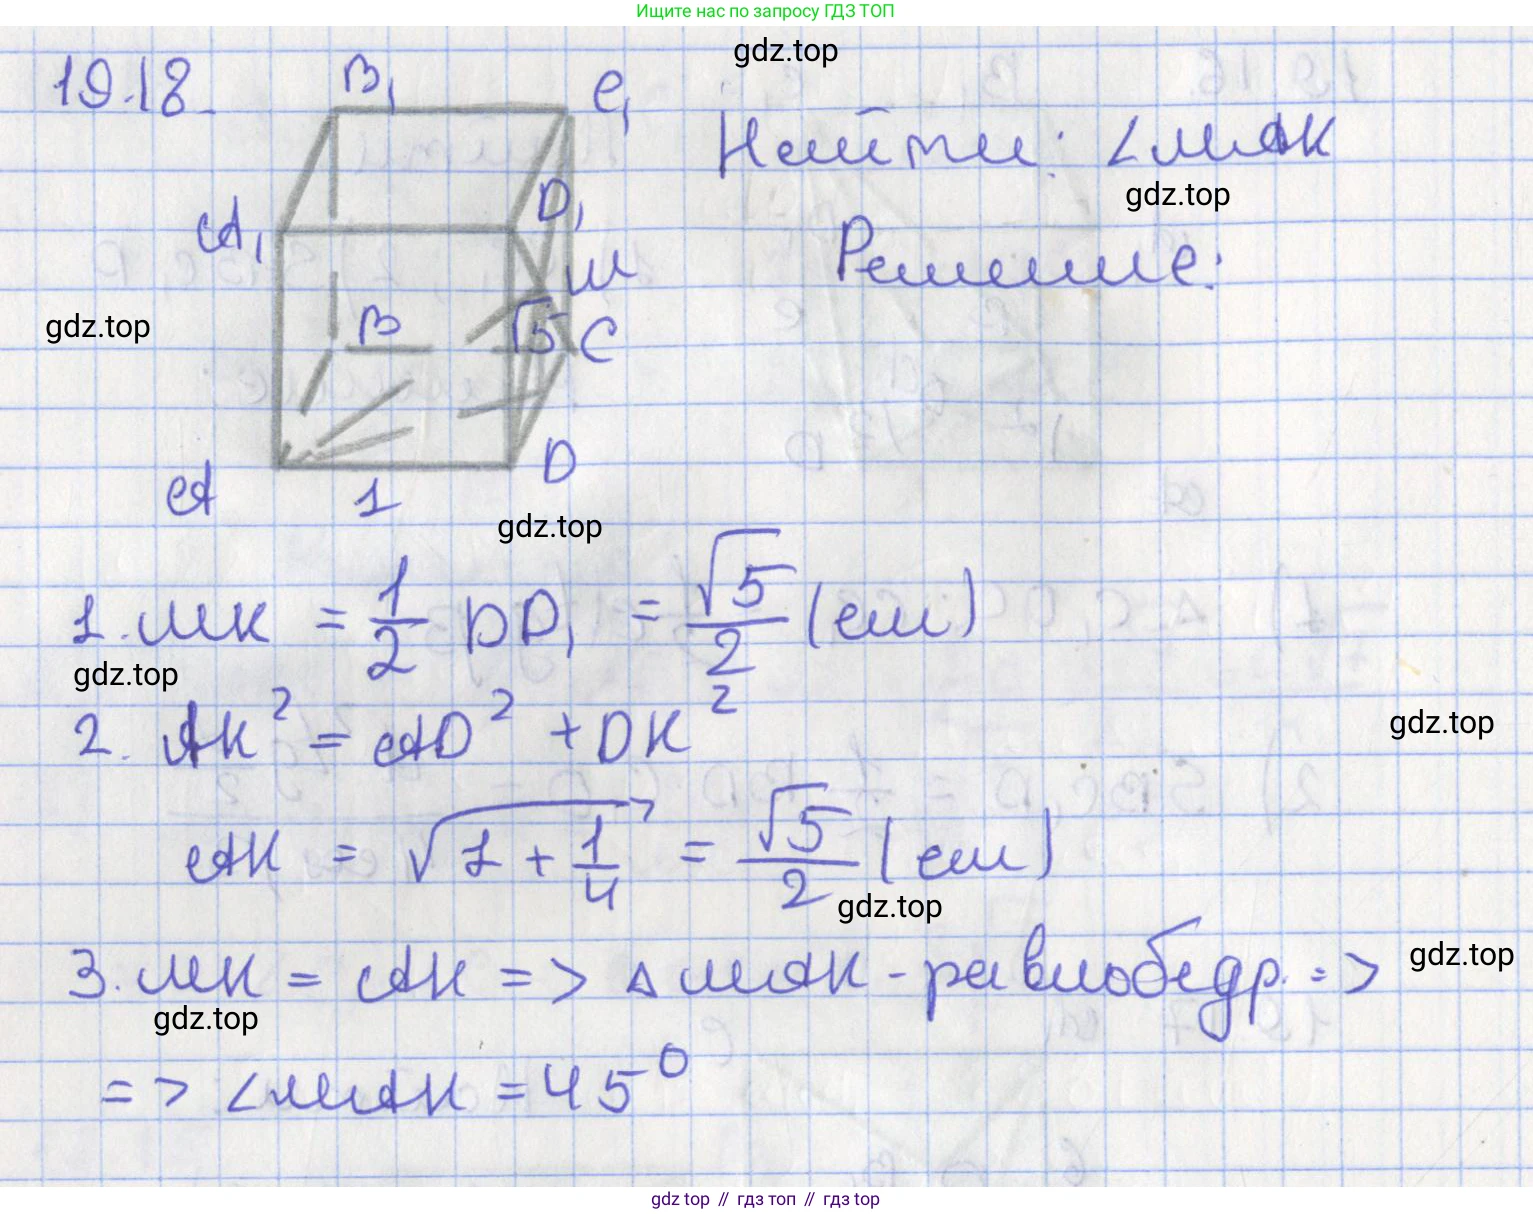 Ищите нас по запросу ГДЗ ТОП
gdz.top
19.18
B₁ C₁
Найти: ∠MAK
gdz.top
A₁ D₁
Решение:
M
gdz.top
B √5 C
A 1 D
gdz.top
1. MK = 1/2 DD₁ = √5/2 (см)
gdz.top
2. AK² = AD² + DK²
gdz.top
AK = √(1 + 1/4) = √5/2 (см)
gdz.top
3. MK = AK => △MAK - равнобедр. =>
gdz.top
gdz.top
=> ∠MAK = 45°
gdz top // гдз топ // гдз top